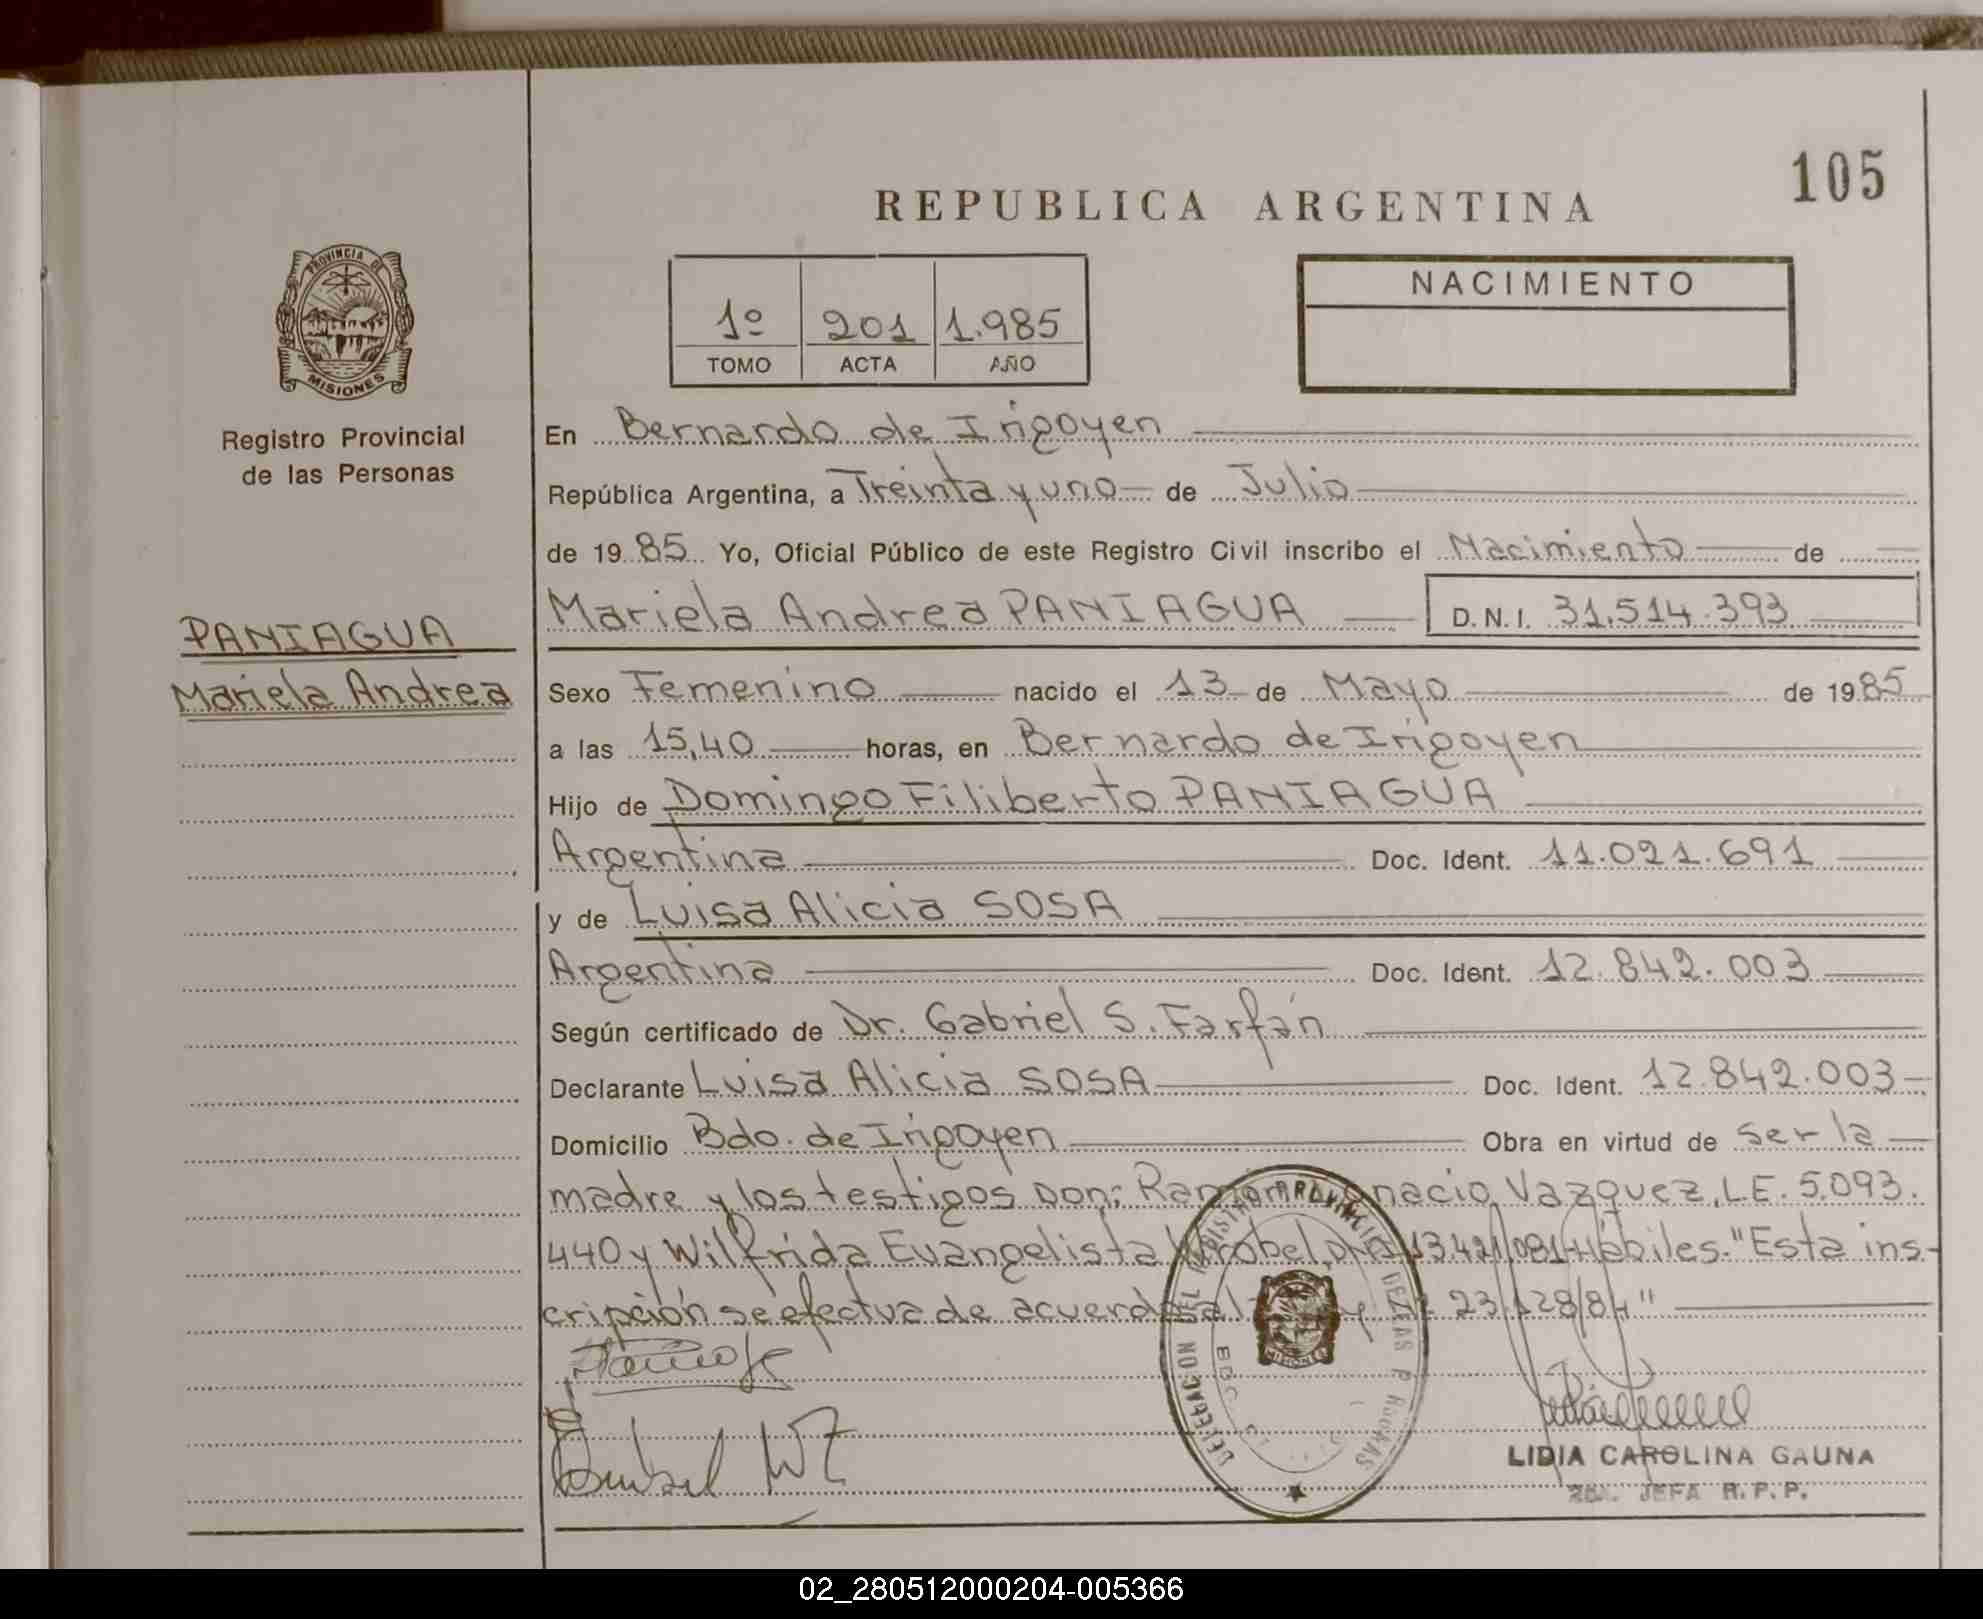 105
REPUBLICA ARGENTINA
PROVINCIA DE
MISIONES
1º 201 1.985
TOMO ACTA AÑO
NACIMIENTO
Registro Provincial
de las Personas
PANIAGUA
Mariela Andrea
En Bernardo de Irigoyen
República Argentina, a Treinta y uno de Julio
de 19 85 Yo, Oficial Público de este Registro Civil inscribo el Nacimiento de
Mariela Andrea PANIAGUA D.N.I. 31.514.393
Sexo Femenino nacido el 13 de Mayo de 19 85
a las 15,40 horas, en Bernardo de Irigoyen
Hijo de Domingo Filiberto PANIAGUA
Argentina Doc. Ident. 11.021.691
y de Luisa Alicia SOSA
Argentina Doc. Ident. 12.842.003
Según certificado de Dr. Gabriel S. Farfán
Declarante Luisa Alicia SOSA Doc. Ident. 12.842.003
Domicilio Bdo. de Irigoyen Obra en virtud de ser la
madre y los testigos Don: Ramón Ignacio Vazquez, L.E. 5.093.
440 y Wilfrida Evangelista 13.421.081 Hábiles. "Esta ins-
cripción se efectua de acuerdo al 23.128/84"
DELEGACION DEL REGISTRO PROVINCIAL
MISIONES
LIDIA CAROLINA GAUNA
2DA. JEFA R.P.P.
02_280512000204-005366